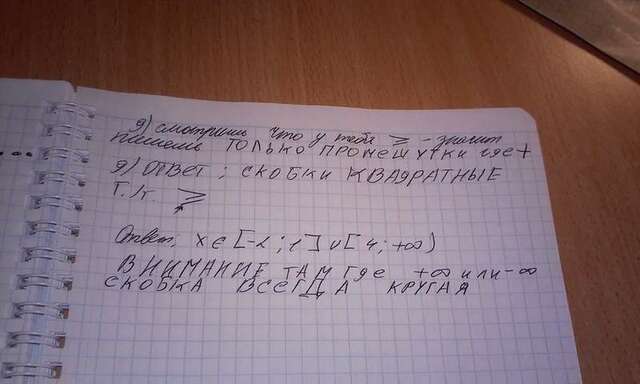 9) смотришь что у тебя ≥ - значит
пишешь ТОЛЬКО ПРОМЕЖУТКИ где +
9) ОТВЕТ ; СКОБКИ КВАДРАТНЫЕ
Т.К. ≥
Ответ, x ∈ [-2 ; 1] ∪ [4 ; +∞)
ВНИМАНИЕ ТАМ ГДЕ +∞ или -∞
СКОБКА ВСЕГДА КРУГЛАЯ